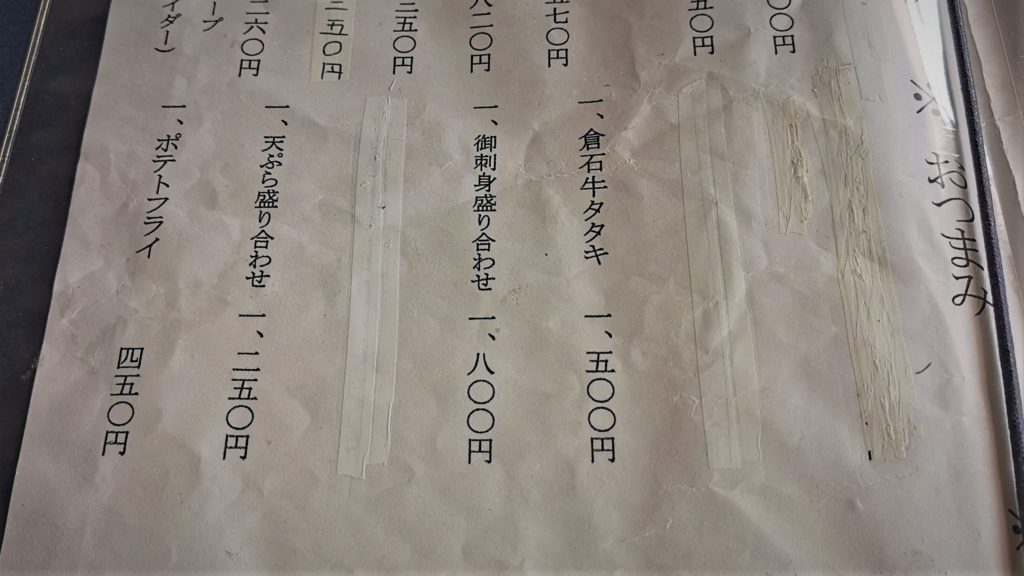 ※ おつまみ
〇〇円
五〇円
一、倉石牛タタキ 一、五〇〇円
七〇円
一、御刺身盛り合わせ 一、八〇〇円
八二〇円
三五〇円
三五〇円
一、天ぷら盛り合わせ 一、二五〇円
二六〇円
一、ポテトフライ 四五〇円
ープ
イダー)
※